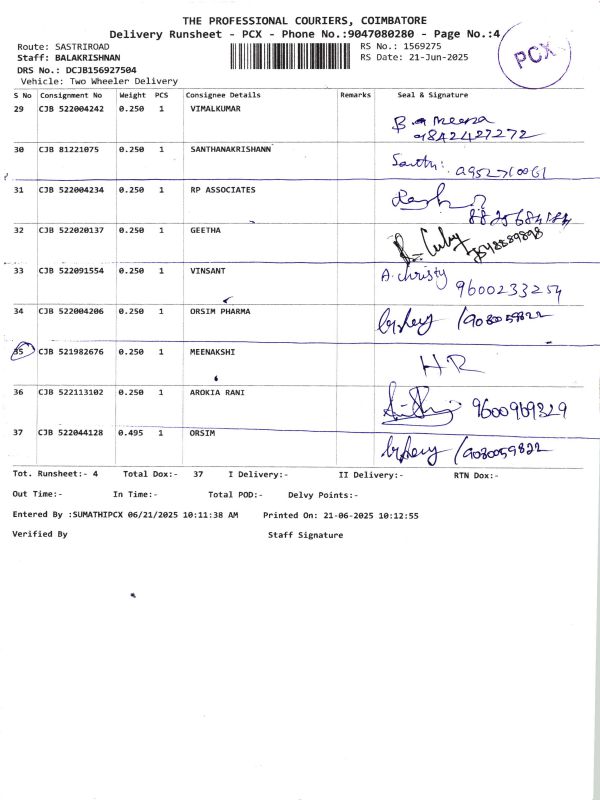 THE PROFESSIONAL COURIERS, COIMBATORE
Delivery Runsheet - PCX - Phone No.:9047080280 - Page No.:4
PCX
Route: SASTRIROAD RS No.: 1569275
Staff: BALAKRISHNAN RS Date: 21-Jun-2025
DRS No.: DCJB156927504
Vehicle: Two Wheeler Delivery
S No Consignment No Weight PCS Consignee Details Remarks Seal & Signature
29 CJB 522004242 0.250 1 VIMALKUMAR
9842427272
30 CJB 81221075 0.250 1 SANTHANAKRISHANN
31 CJB 522004234 0.250 1 RP ASSOCIATES
32 CJB 522020137 0.250 1 GEETHA
33 CJB 522091554 0.250 1 VINSANT A. Christy
9600233254
34 CJB 522004206 0.250 1 ORSIM PHARMA /9080059822
35 CJB 521982676 0.250 1 MEENAKSHI HR
36 CJB 522113102 0.250 1 AROKIA RANI 9600969329
37 CJB 522044128 0.495 1 ORSIM /9080059822
Tot. Runsheet:- 4 Total Dox:- 37 I Delivery:- II Delivery:- RTN Dox:-
Out Time:- In Time:- Total POD:- Delvy Points:-
Entered By :SUMATHIPCX 06/21/2025 10:11:38 AM Printed On: 21-06-2025 10:12:55
Verified By Staff Signature